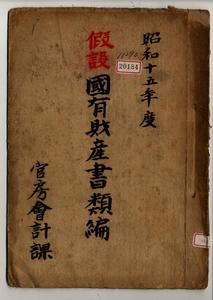 昭和十五年度
假設
國有財産書類編
官房會計課
20184